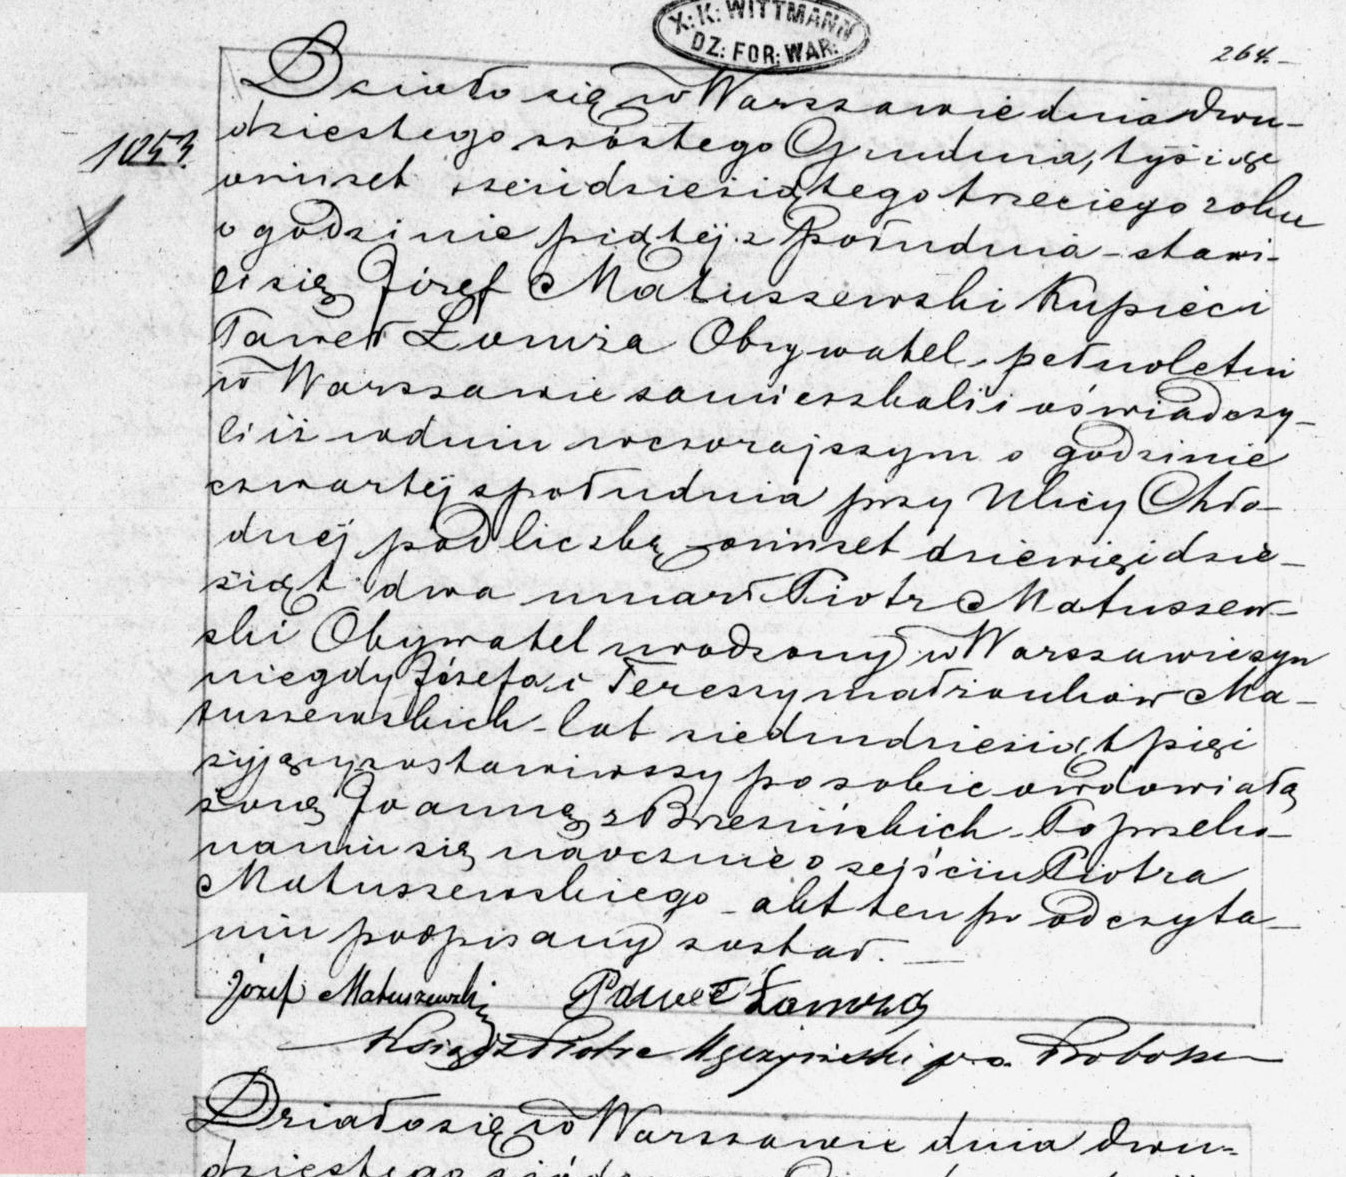 X: K: WITTMANN
DZ: FOR: WAR:
264.
1053.
Działo się w Warszawie dnia dwu-
dziestego szóstego Grudnia, tysiąc
ośmset sześćdziesiątego trzeciego roku
o godzinie piątéj z Południa – stawi-
li się Józef Matuszewski Kupiec i
Paweł Obywatel, pełnoletni
w Warszawie zamieszkali i oświadczy-
li iż w dniu wczorajszym o godzinie
czwartéj z południa przy Ulicy Chło-
dnéj pod liczbą ośmset dziewięćdzie-
siąt dwa umarł Piotr Matuszew-
ski Obywatel urodzony w Warszawie syn
niegdy Józefa i Teressy małżonków Ma-
tuszewskich – lat siedmdziesiąt pięć
żyjący zostawiwszy po sobie owdowiałą
żonę Joannę z Brzezińskich – Po przeko-
naniu się naocznie o zejściu Piotra
Matuszewskiego – akt ten po odczyta-
niu podpisany został. —
Józef Matuszewski Paweł
Ksiądz Piotr p. o. Proboszcza
Działo się w Warszawie dnia dwu-
dziestego